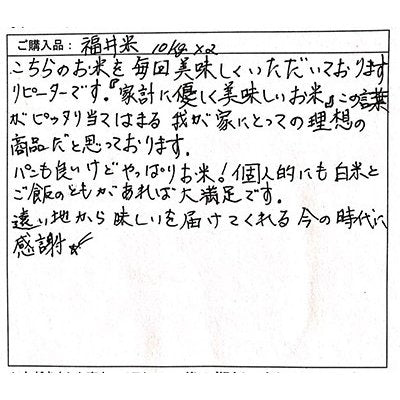 ご購入品： 福井米 10kg×2
こちらのお米を毎回美味しくいただいております
リピーターです。『家計に優しく美味しいお米』この言葉
がピッタリ当てはまる 我が家にとっての理想の
商品だと思っております。
パンも良いけどやっぱりお米！個人的にも白米と
ご飯のともがあれば大満足です。
遠い地から味しいを届けてくれる今の時代に
感謝